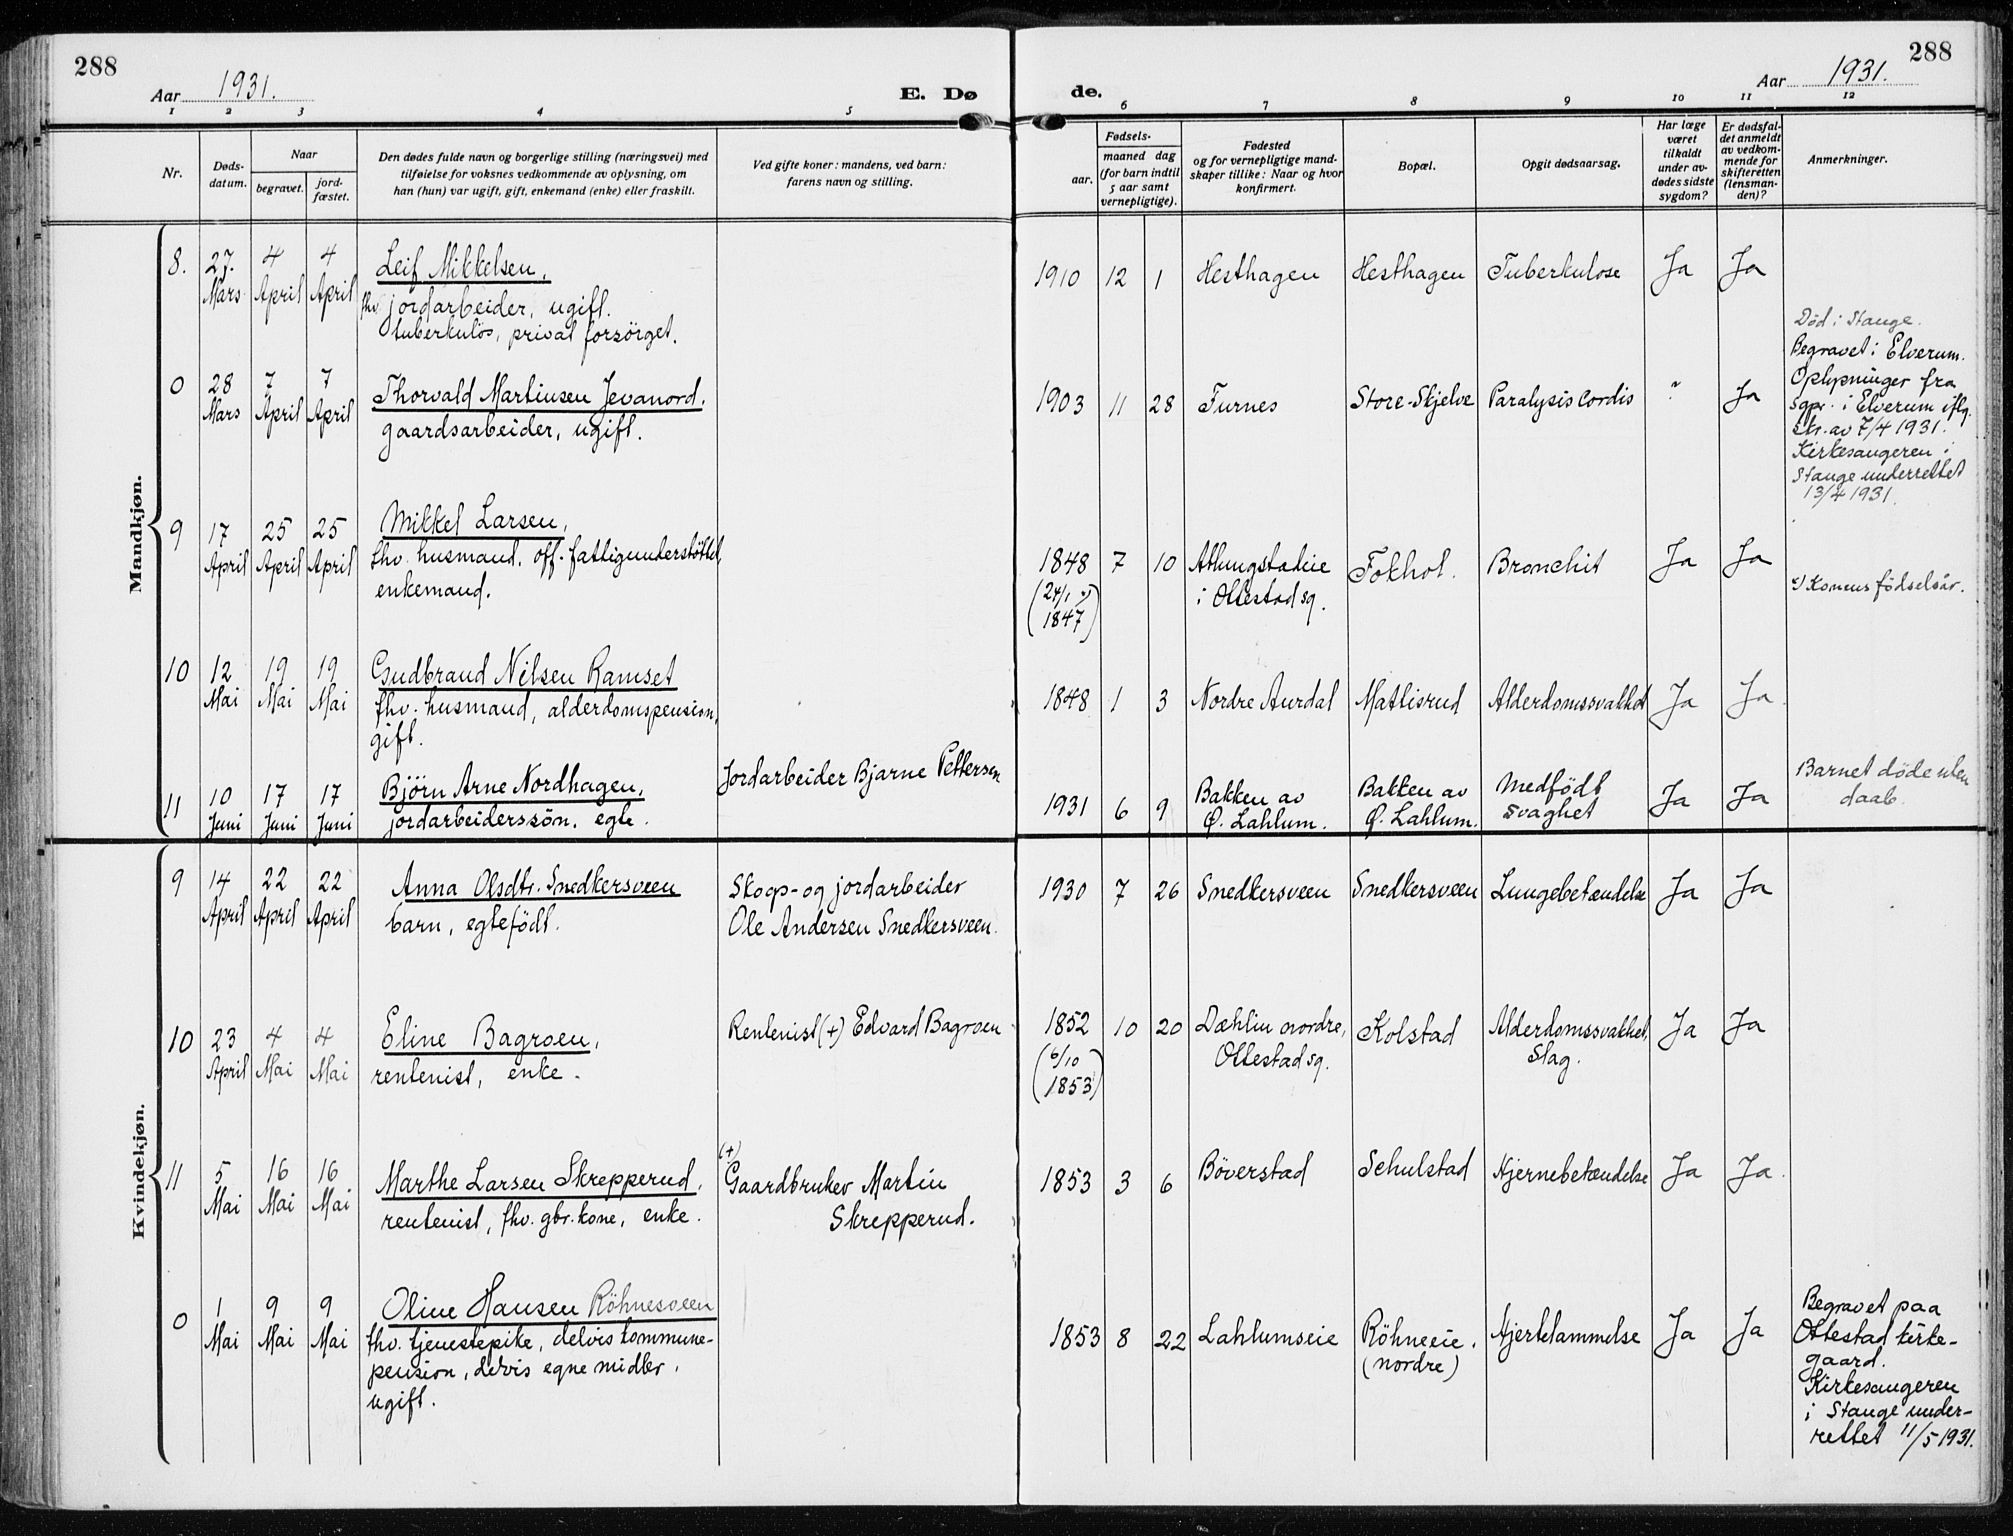 288
Aar 1931.
E. Dø
de.
Aar 1931.
288
1 2 3 4 5 6 7 8 9 10 11 12
Nr.
Døds-
datum.
Naar
begravet.
jord-
fæstet.
Den dødes fulde navn og borgerlige stilling (næringsvei) med
tilføielse for voksnes vedkommende av oplysning, om
han (hun) var ugift, gift, enkemand (enke) eller fraskilt.
Ved gifte koner: mandens, ved barn:
farens navn og stilling.
Fødsels-
aar.
maaned dag
(for barn indtil
5 aar samt
vernepligtige).
Fødested
og for vernepligtige mand-
skaper tillike: Naar og hvor
konfirmert.
Bopæl.
Opgit dødsaarsag.
Har læge
været
tilkaldt
under av-
dødes sidste
sygdom?
Er dødsfal-
det anmeldt
av vedkom-
mende for
skifteretten
(lensman-
den)?
Anmerkninger.
Mandkjøn.
8. 27. Mars 4 April 4 April
Leif Mikkelsen,
fhv. jordarbeider, ugift.
tuberkuløs, privat forsörget.
1910 12 1 Hesthagen Hesthagen Tuberkulose Ja Ja
0 28 Mars 7 April 7 April
Thorvald Martinsen Jevanord.
gaardsarbeider, ugift.
1903 11 28 Furnes Store-Skjelve Paralysis cordis ? Ja
Död i Stange.
Begravet i Elverum.
Oplysninger fra
sgpr. i Elverum iflg.
skr. av 7/4 1931.
Kirkesangeren i
Stange underrettet
13/4 1931.
9 17 April 25 April 25 April
Mikkel Larsen,
fhv. husmand. off. fattigunderstöttet,
enkemand.
1848 7 10
(24/1 1847)
i Ottestad sg.
Fokhol. Bronchit Ja Ja
Konens födselsår.
10 12 Mai 19 Mai 19 Mai
Gudbrand Nilsen Ramset
fhv. husmand, alderdomspension,
gift.
1848 1 3 Nordre Aurdal Mattisrud Alderdomssvakhet Ja Ja
11 10 Juni 17 Juni 17 Juni
Björn Arne Nordhagen,
jordarbeiderssön. egte.
Jordarbeider Bjarne Pettersen
1931 6 9
Bakken av
Ø. Lahlum.
Bakken av
Ø. Lahlum.
Medfödt
svaghet
Ja Ja
Barnet döde uten
daab.
Kvindekjøn.
9 14 April 22 April 22 April
Anna Olsdtr. Snedkersveen
barn, egtefödt.
Skogs- og jordarbeider
Ole Andersen Snedkersveen.
1930 7 26 Snedkersveen Snedkersveen Lungebetændelse Ja Ja
10 23 April 4 Mai 4 Mai
Eline Bagroen,
rentenist, enke.
Rentenist (+) Edvard Bagroen
1852 10 20
(6/10 1853)
Dæhlin nordre,
Ottestad sg.
Kolstad
Alderdomssvakhet,
Slag.
Ja Ja
11 5 Mai 16 Mai 16 Mai
Marthe Larsen Skrepperud,
rentenist, fhv. gbr. kone, enke.
(+)
Gaardbruker Martin
Skrepperud.
1853 3 6 Böverstad Schulstad Hjernebetændelse Ja Ja
0 1 Mai 9 Mai 9 Mai
Oline Hansen Röhnesveen
fhv. tjenestepike, delvis kommune-
pension, delvis egne midler,
ugift.
1853 8 22 Lahlumseie
Röhneeie.
(nordre)
Hjertelammelse Ja Ja
Begravet paa
Ottestad kirke-
gaard.
Kirkesangeren
i Stange under-
rettet 11/5 1931.